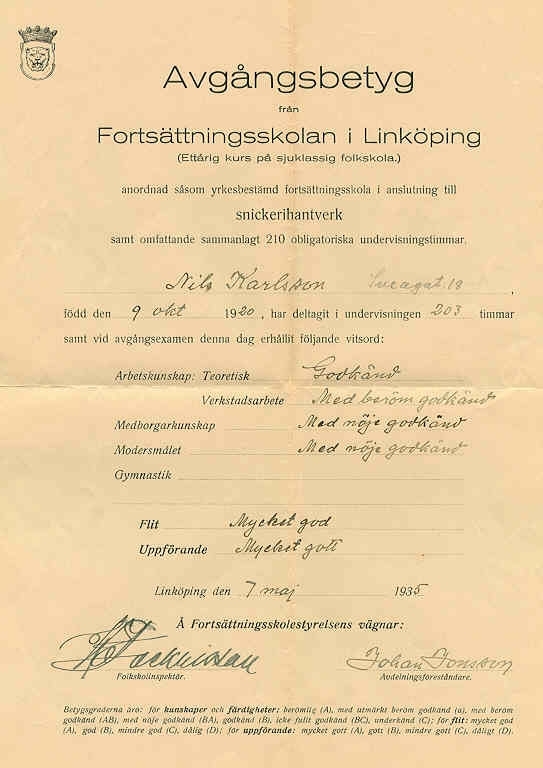 Avgångsbetyg
från
Fortsättningsskolan i Linköping
(Ettårig kurs på sjuklassig folkskola.)
anordnad såsom yrkesbestämd fortsättningsskola i anslutning till
snickerihantverk
samt omfattande sammanlagt 210 obligatoriska undervisningstimmar.
Nils Karlsson Sveagat. 18,
född den 9 okt 1920, har deltagit i undervisningen 203 timmar
samt vid avgångsexamen denna dag erhållit följande vitsord:
Arbetskunskap: Teoretisk Godkänd
Verkstadsarbete Med beröm godkänd
Medborgarkunskap Med nöje godkänd
Modersmålet Med nöje godkänd
Gymnastik
Flit Mycket god
Uppförande Mycket gott
Linköping den 7 maj 1935
Å Fortsättningsskolestyrelsens vägnar:
Johan Jonsson
Folkskolinspektör. Avdelningsföreståndare.
Betygsgraderna äro: för kunskaper och färdigheter: berömlig (A), med utmärkt beröm godkänd (a), med beröm
godkänd (AB), med nöje godkänd (BA), godkänd (B), icke fullt godkänd (BC), underkänd (C); för flit: mycket god
(A), god (B), mindre god (C), dålig (D); för uppförande: mycket gott (A), gott (B), mindre gott (C), dåligt (D).